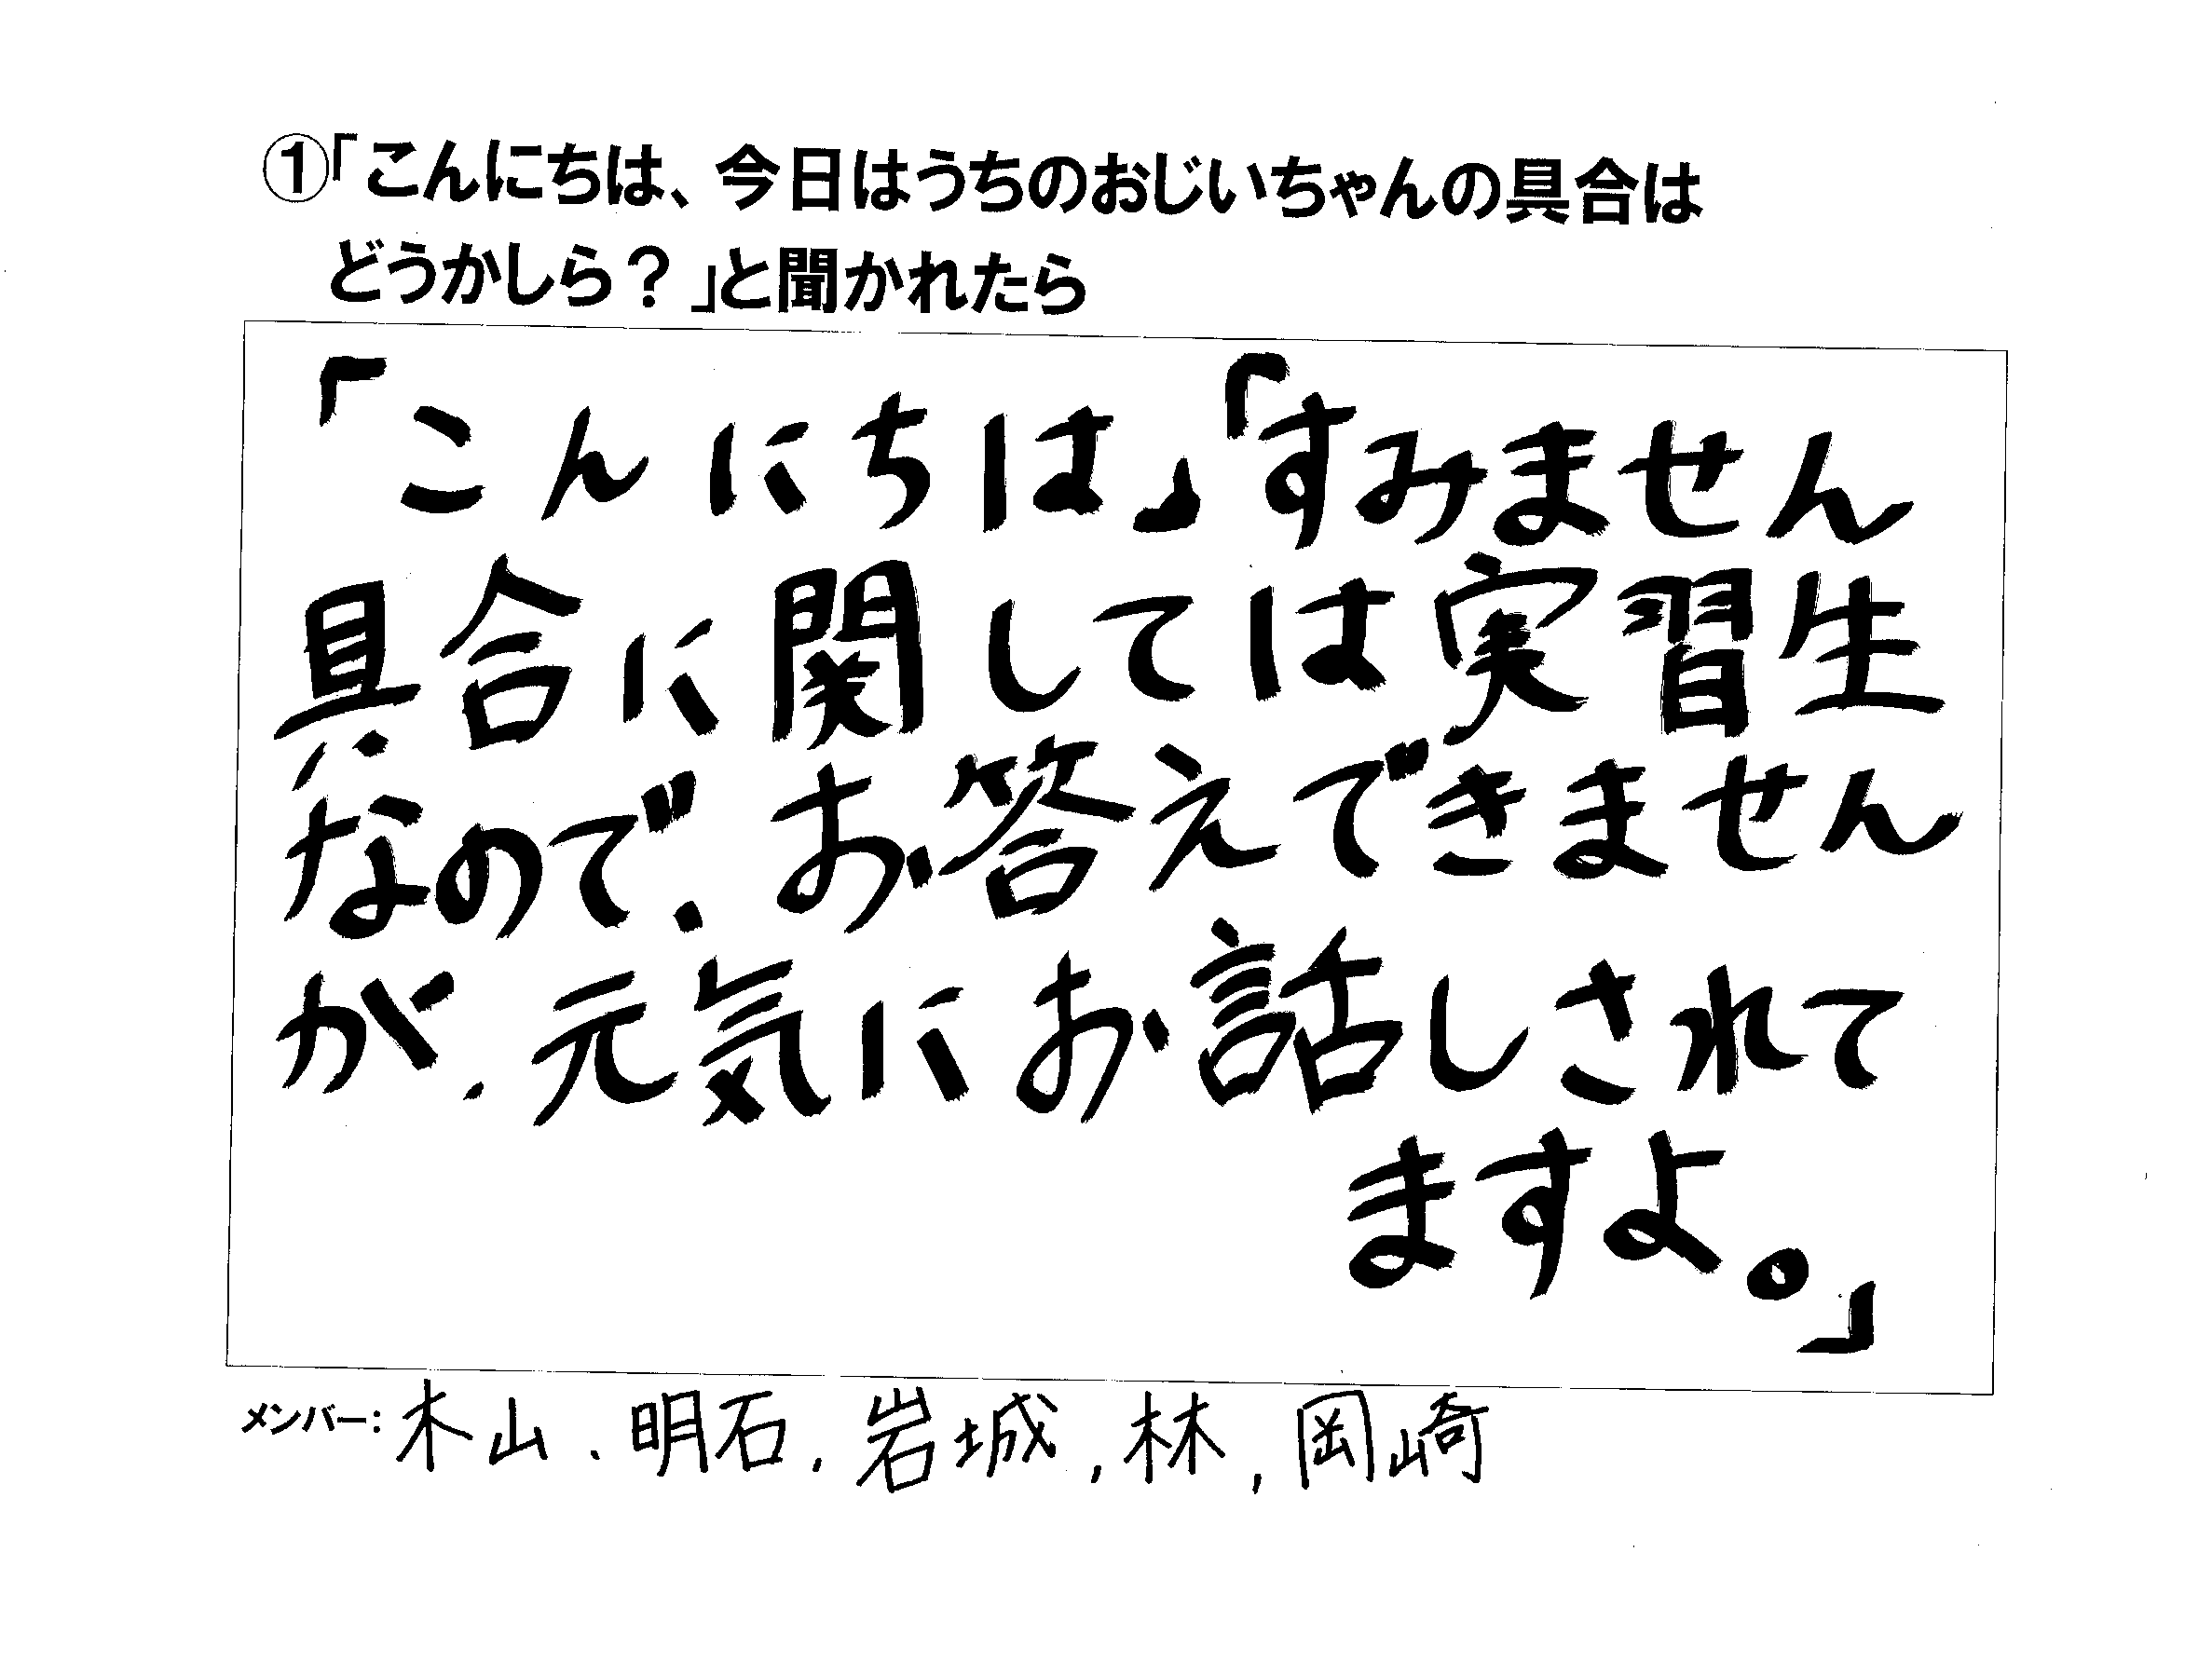 ①「こんにちは、今日はうちのおじいちゃんの具合は
どうかしら？」と聞かれたら
「こんにちは」「すみません
具合に関しては実習生
なので、お答えできません
が、元気にお話しされて
ますよ。」
メンバー：木山、明石、岩城、林、岡崎